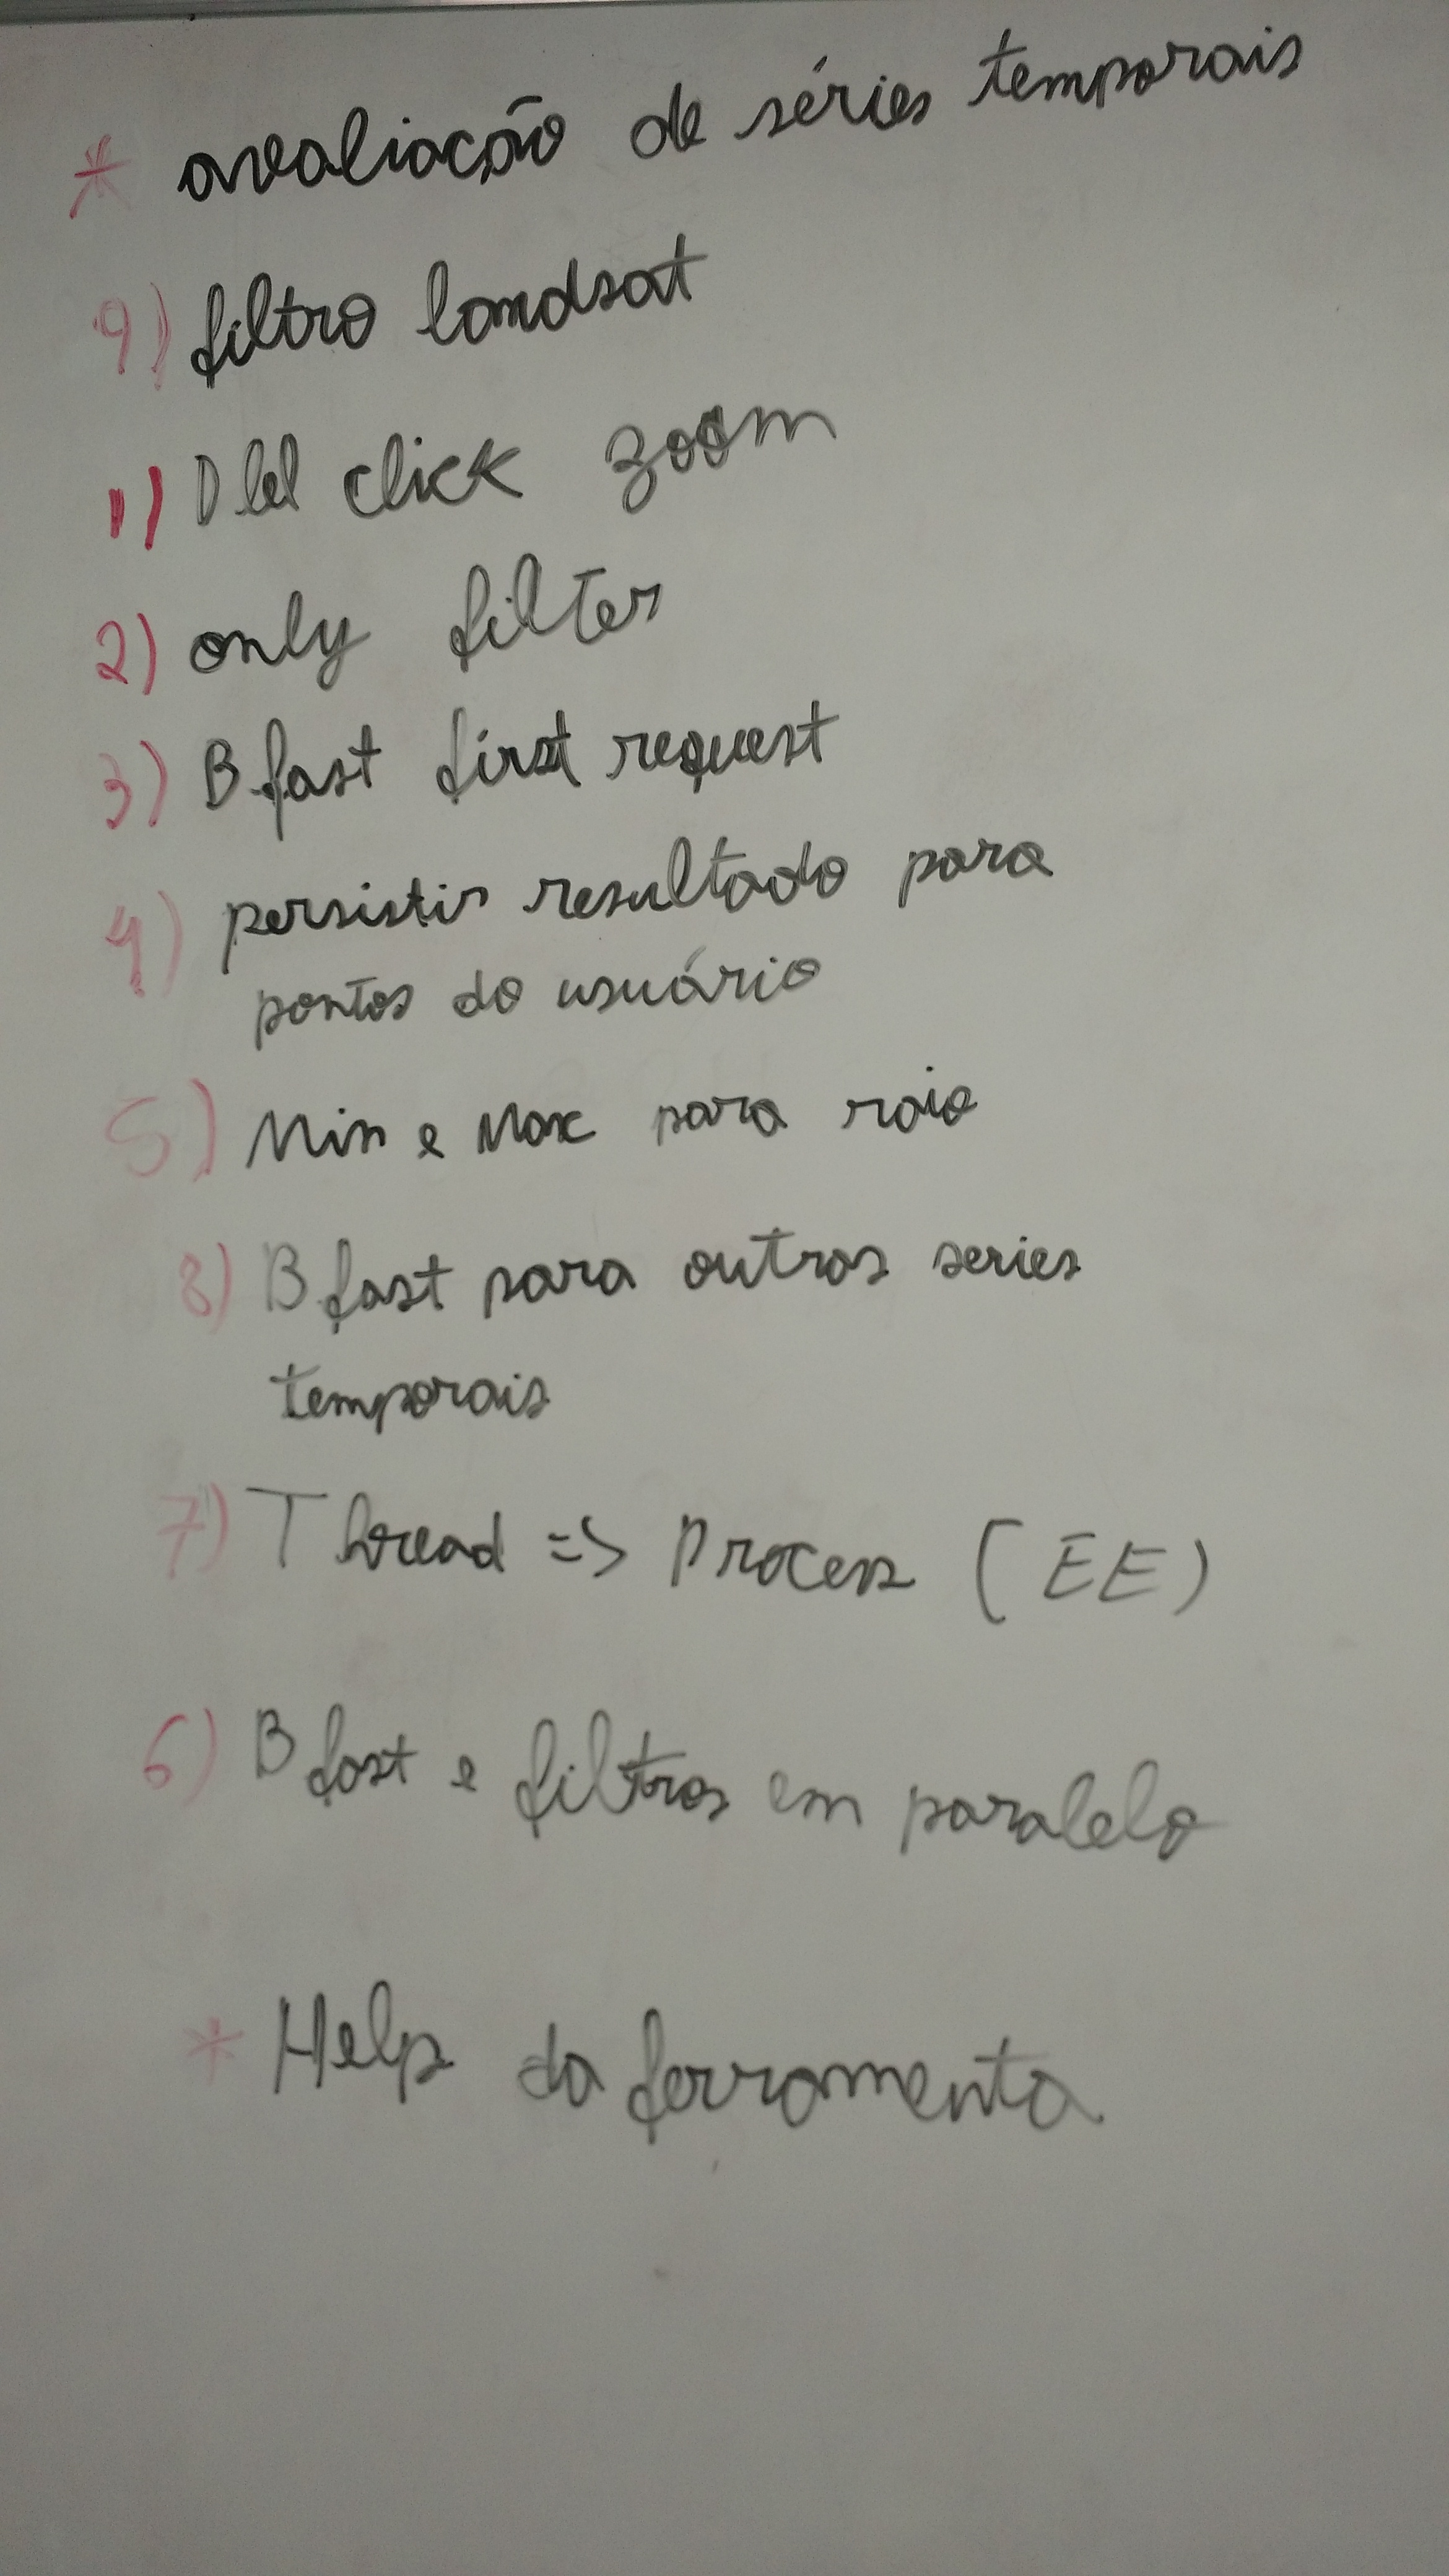 * avaliação de séries temporais
9) filtro landsat
1) Dbl click zoom
2) only filter
3) Bfast first request
4) persistir resultado para
pontos do usuário
5) Min e Max para raio
8) Bfast para outras series
temporais
7) Thread => Process (EE)
6) Bfast e filtros em paralelo
* Help da ferramenta